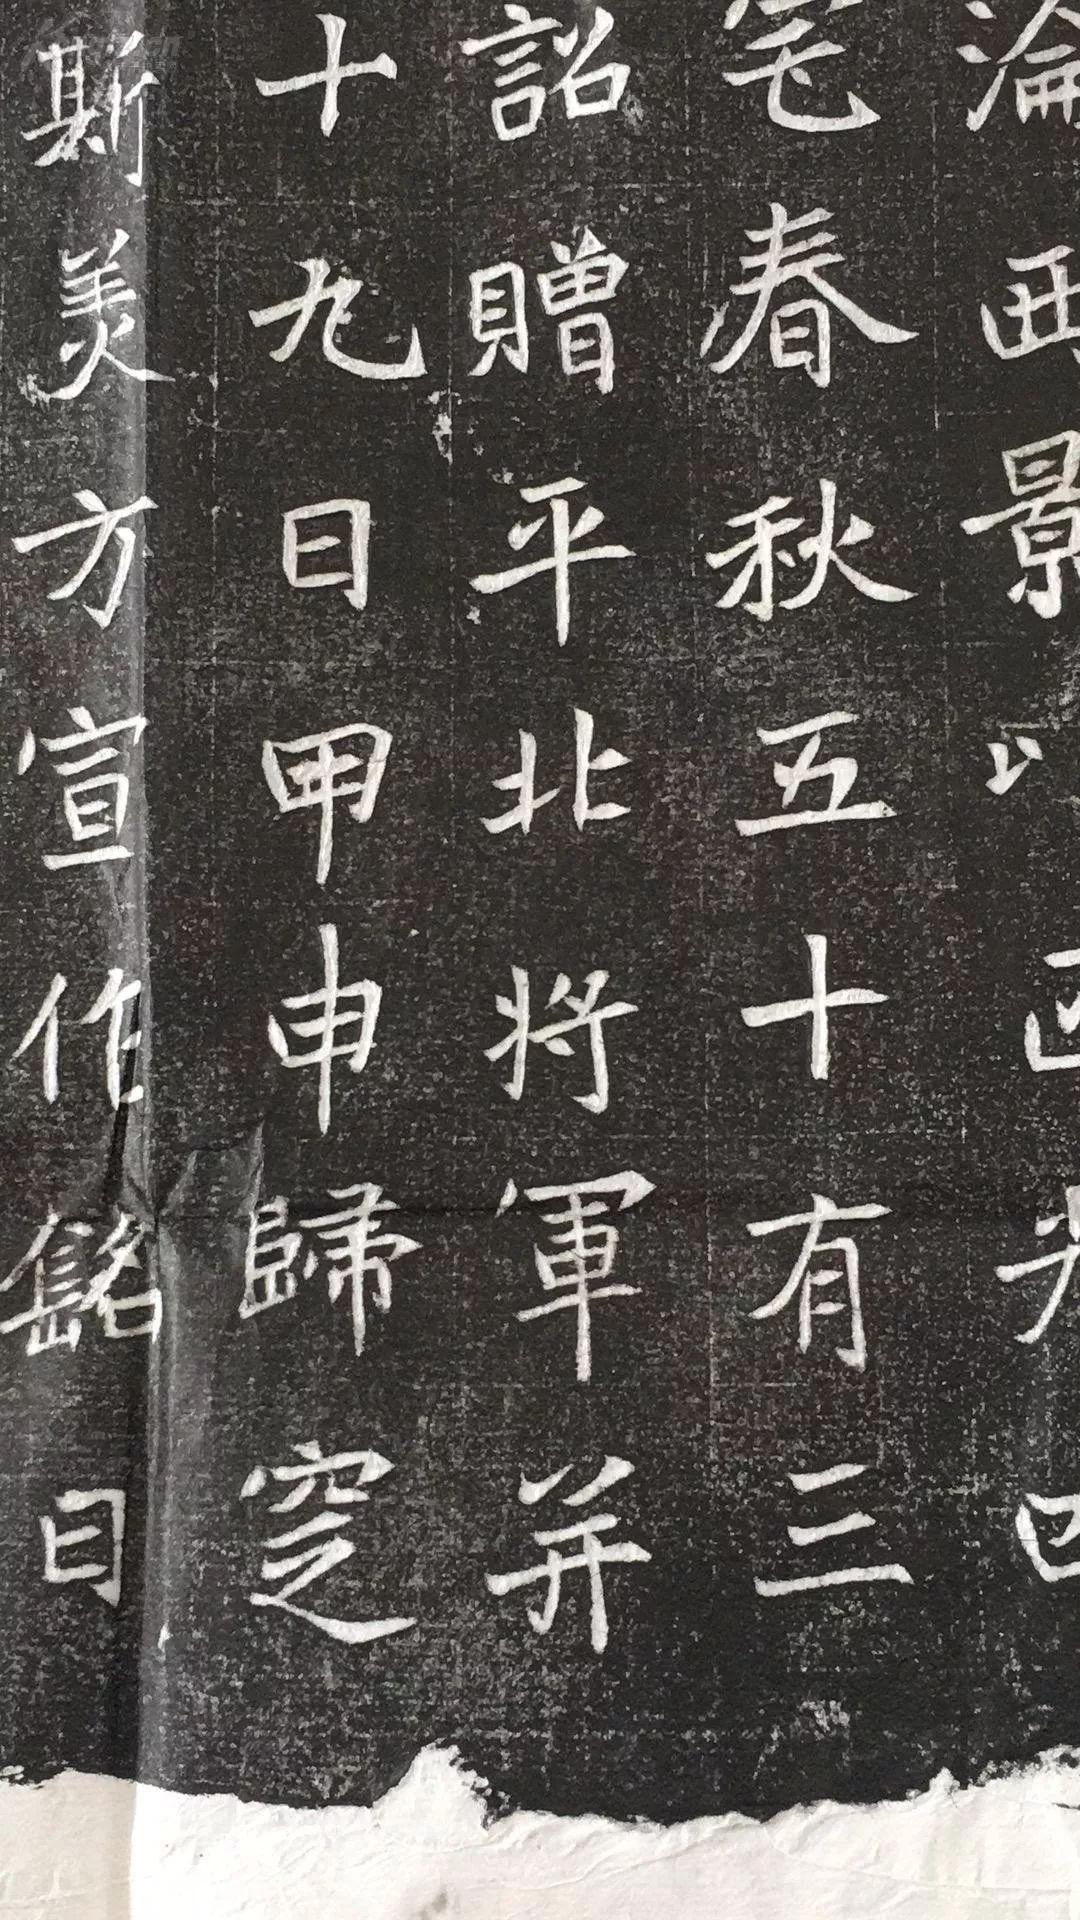 淪西景以西光四
宅春秋五十有三
詔贈平北將軍并
十九日甲申歸窆
斯美方宣作銘曰